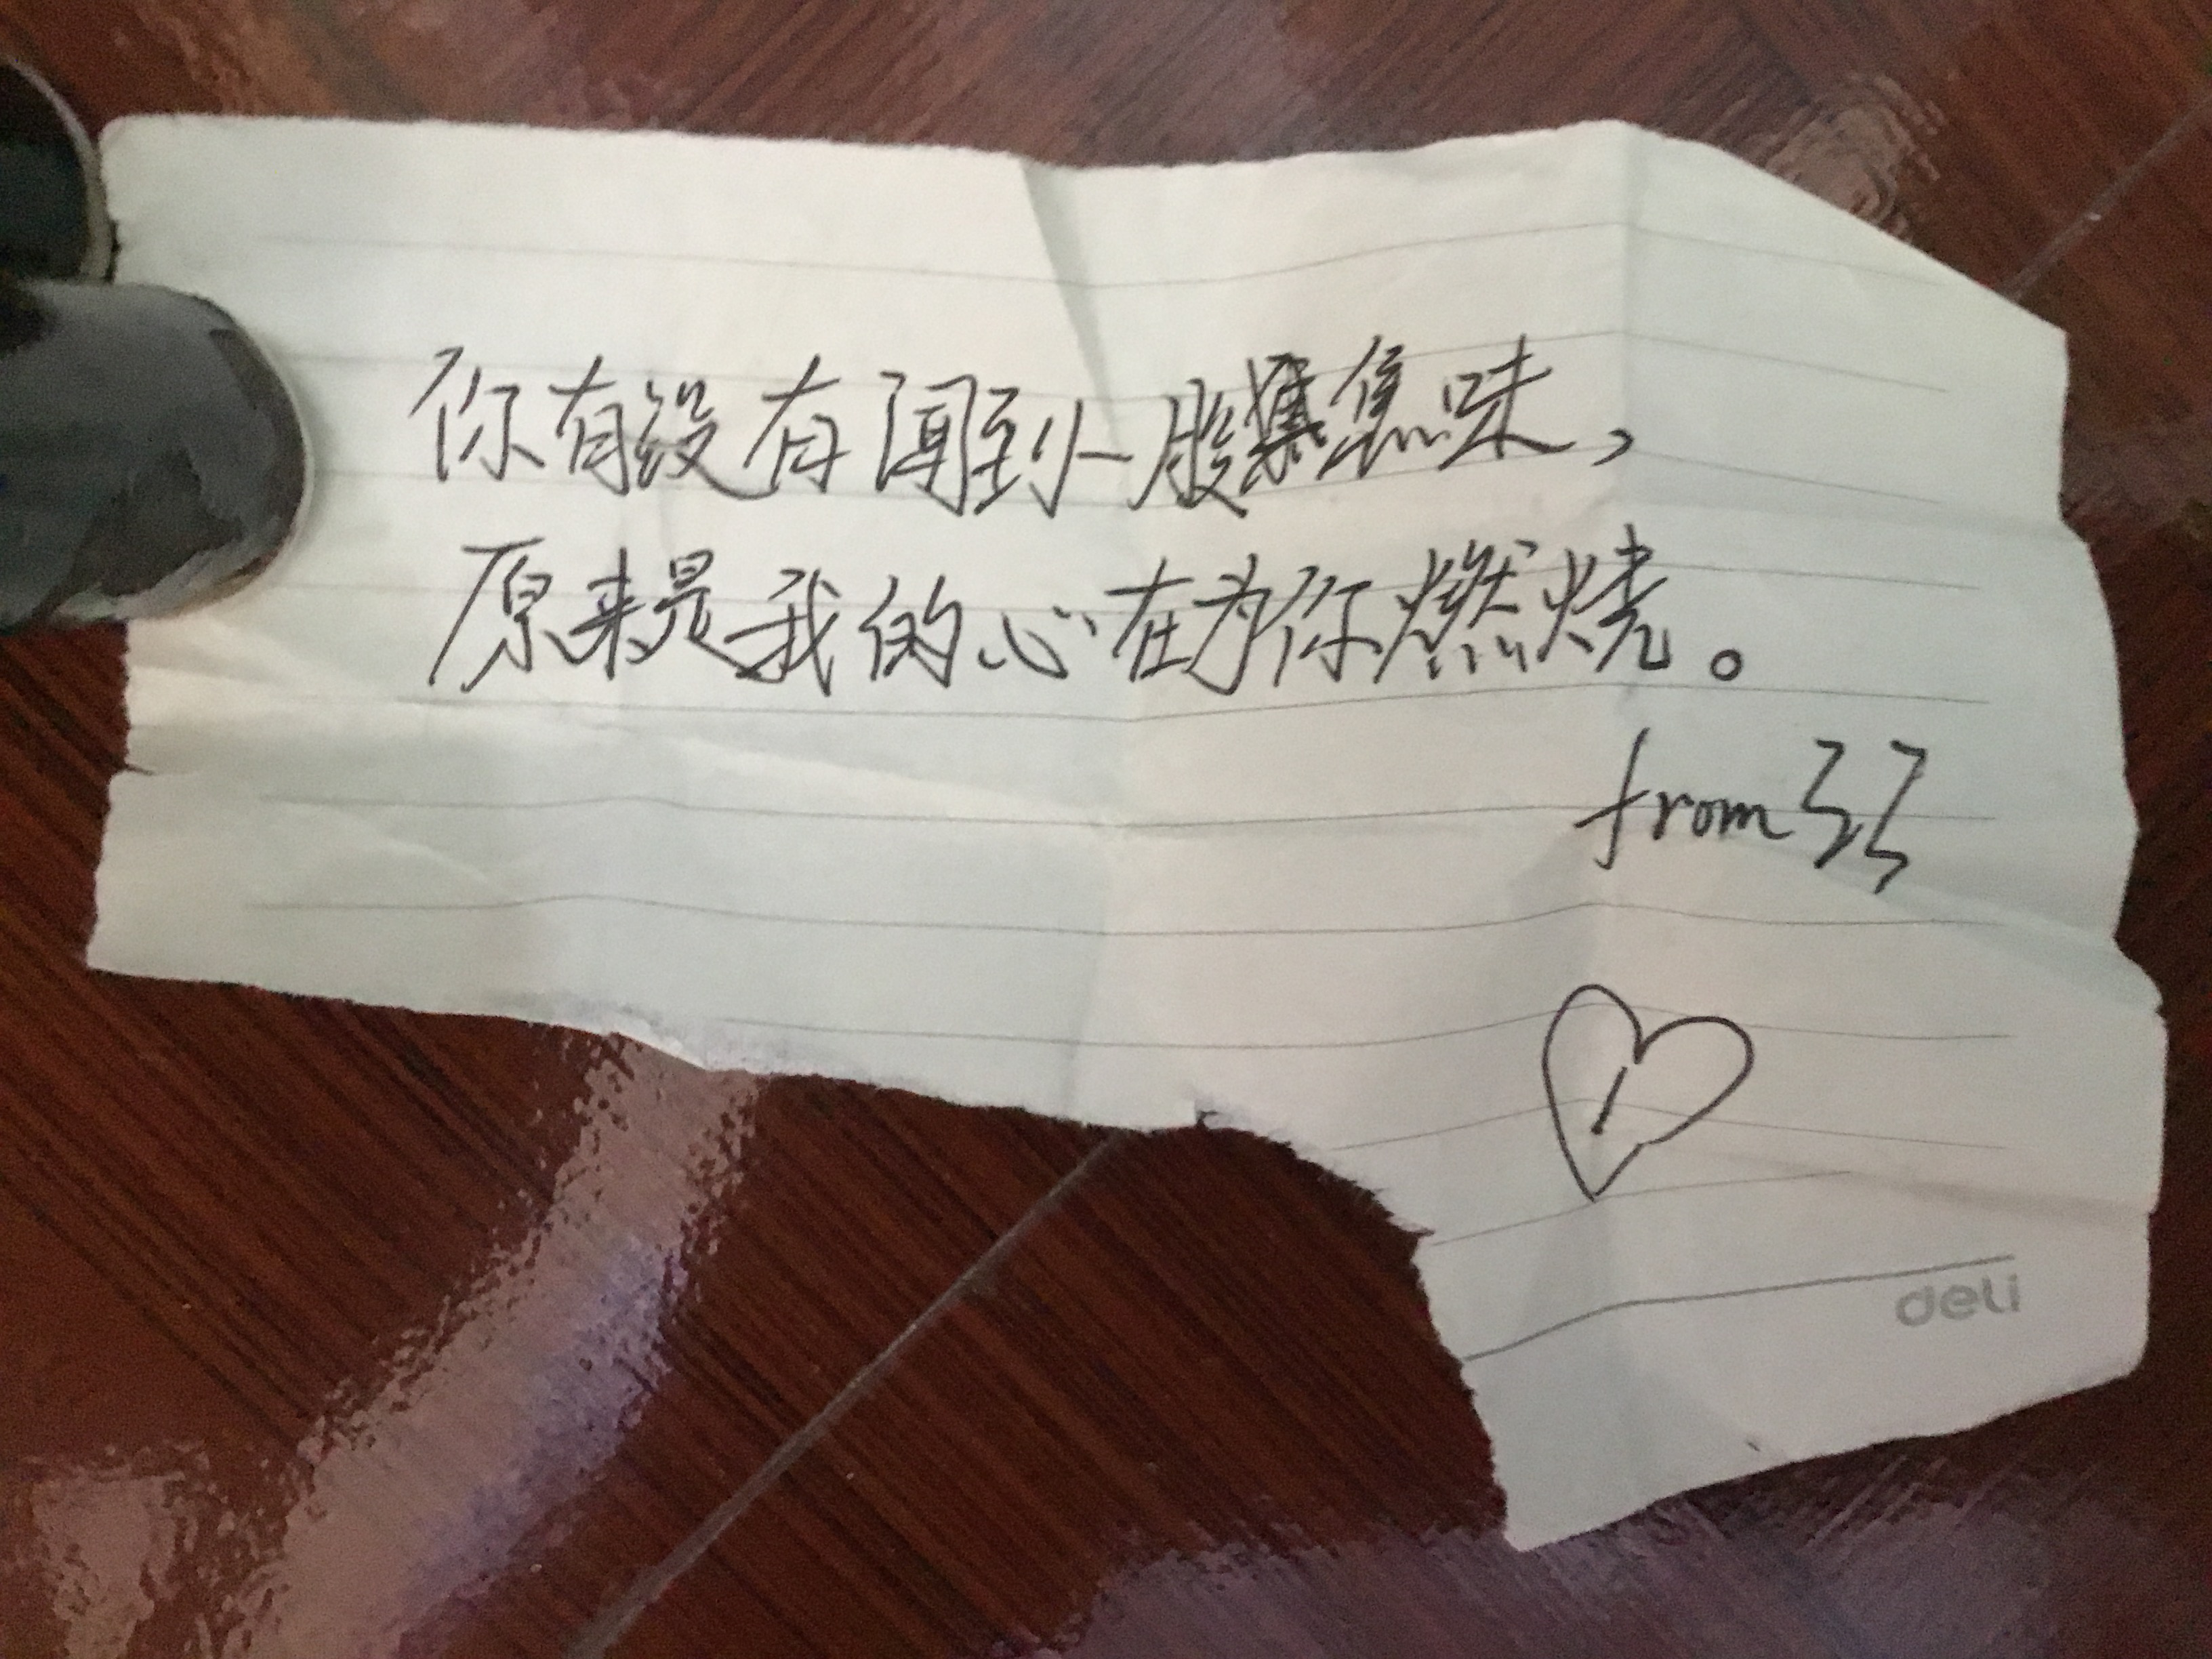 你有没有闻到一股焦味,
原来是我的心在为你燃烧。
from
deli